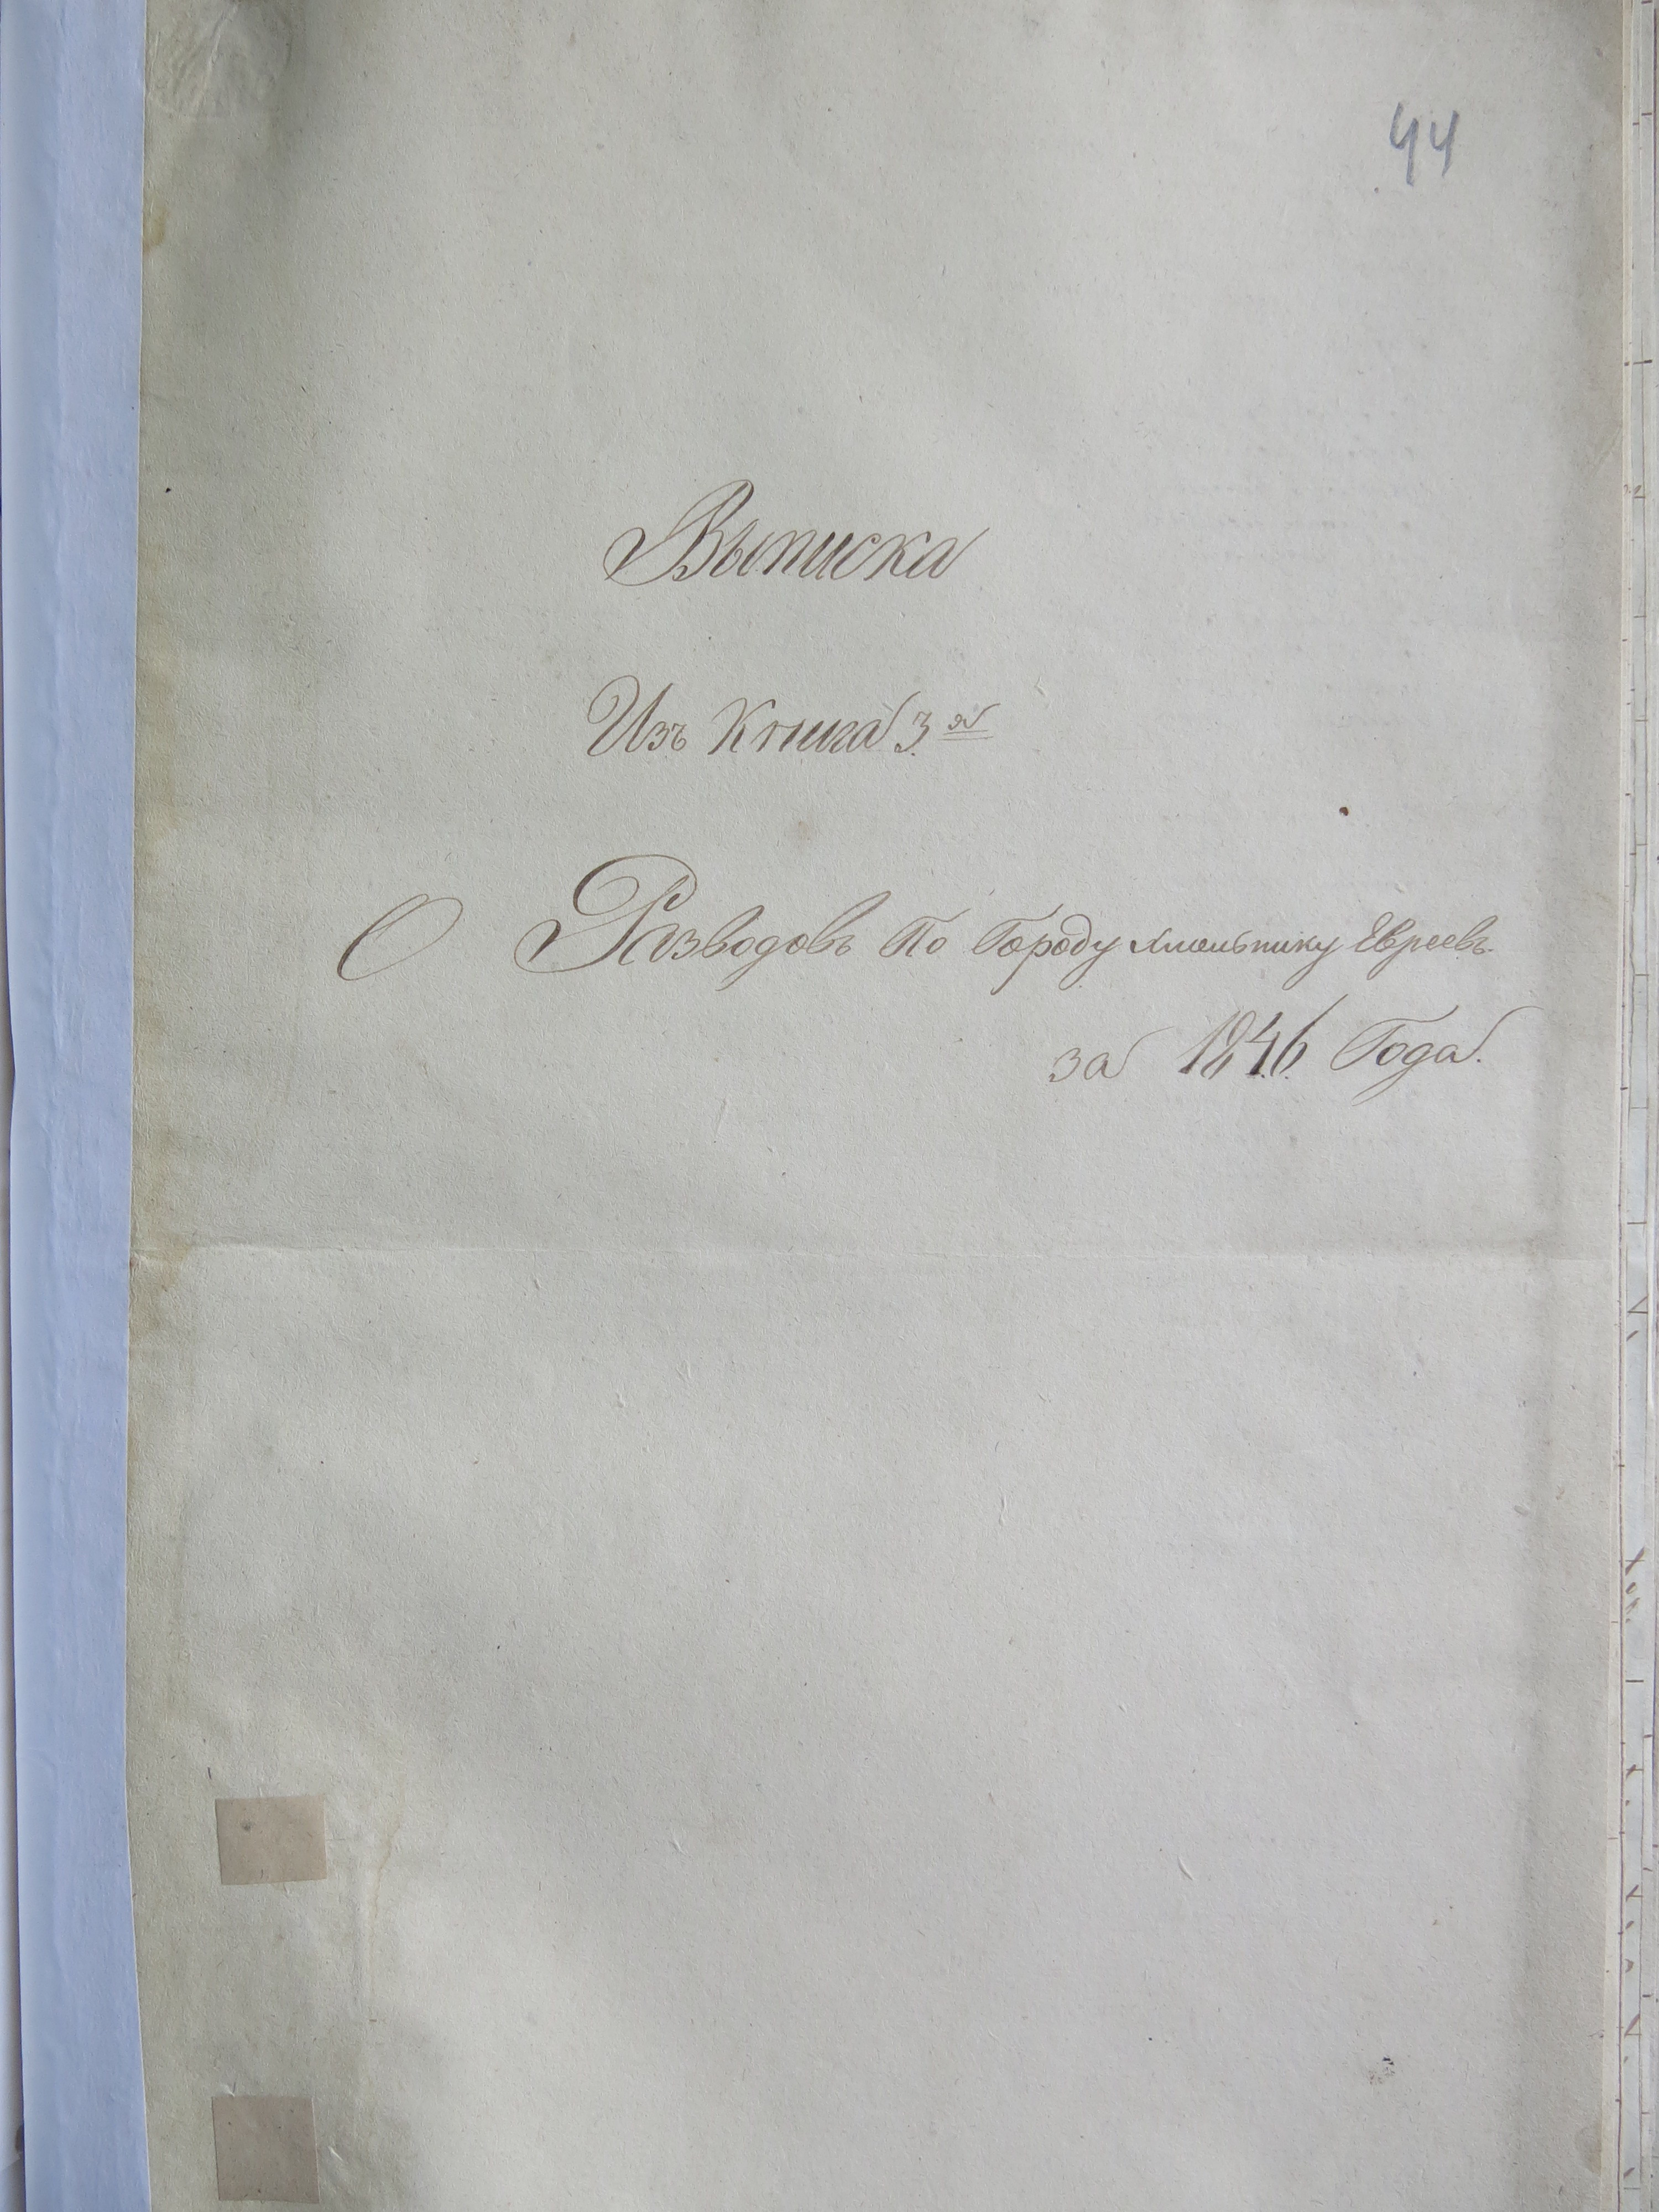 44
Выписка
Изъ Книга 3 я
О Разводовъ По Городу Хмельнику Евреевъ.
за 1846 Года.